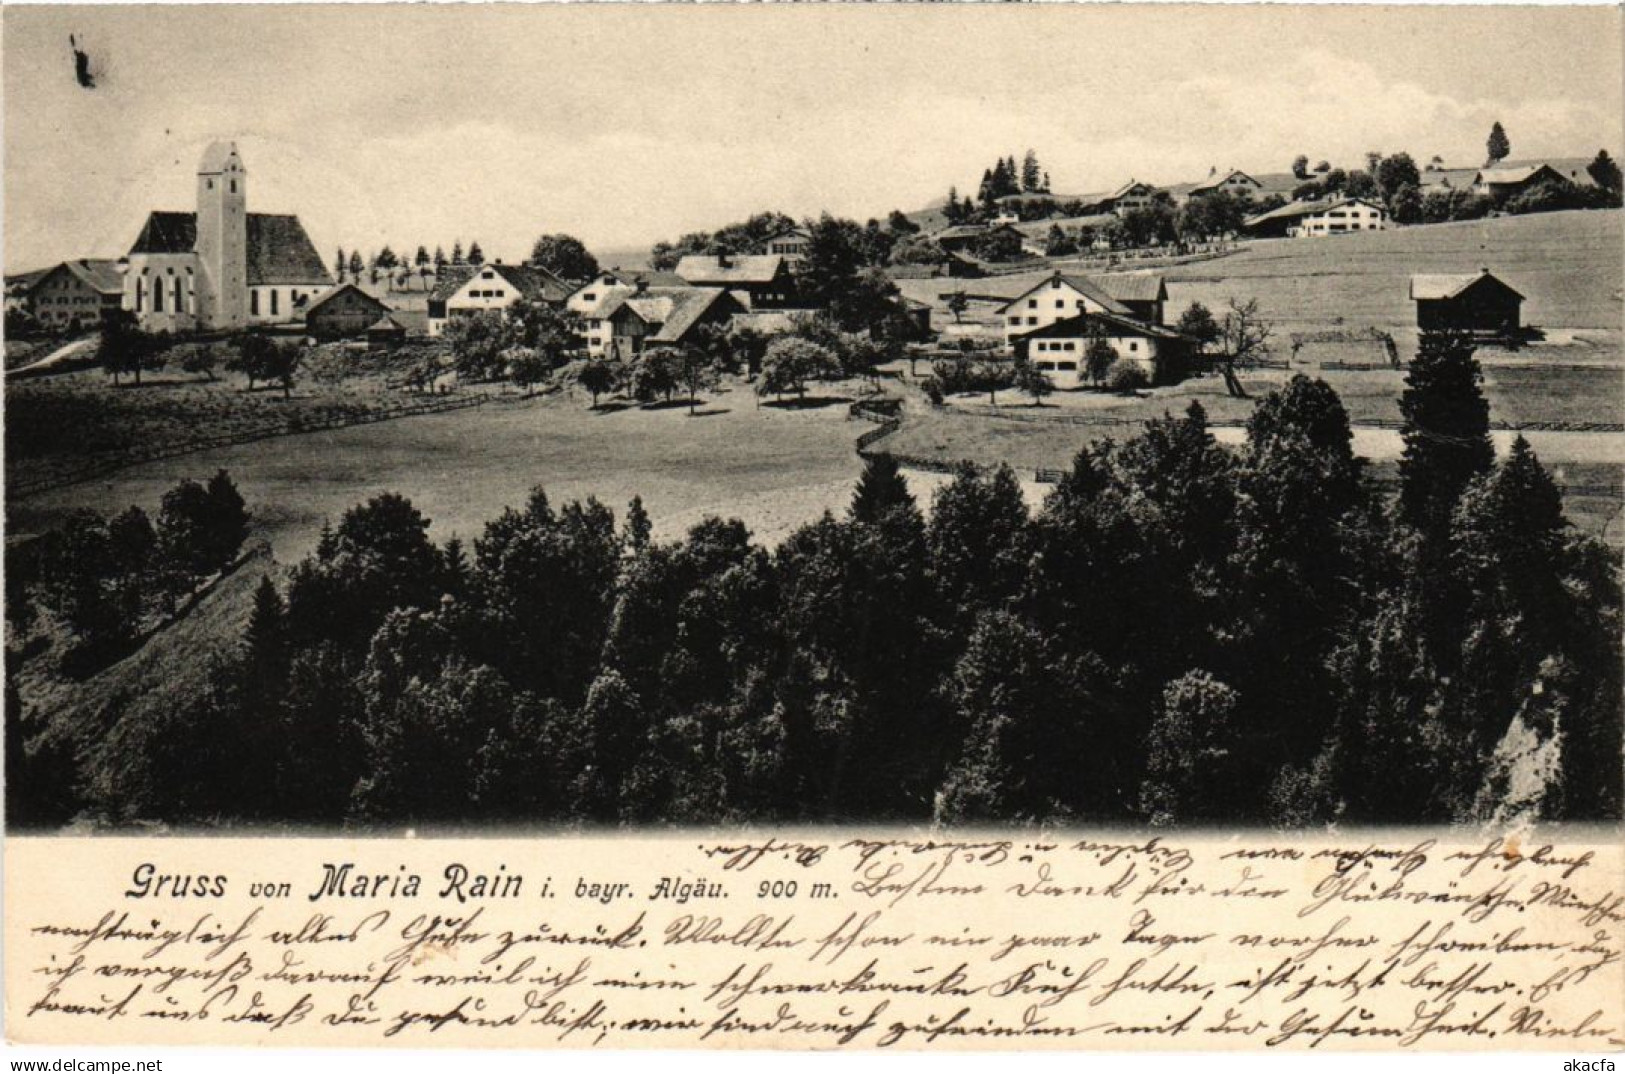 Gruss von Maria Rain i. bayr. Algäu. 900 m. Besten Dank für den Glückwünsche. Wünsche
nachträglich alles Gute zurück. Wollte schon ein paar Tage vorher schreiben, doch
ich vergaß darauf weil ich eine schwerkranke Kuh hatte, ist jetzt besser. Es
freut uns daß Du gesund bist; wir sind auch zufrieden mit der Gesundheit. Viele
herzliche Grüße von
DELCAMPE.NET
akacfa